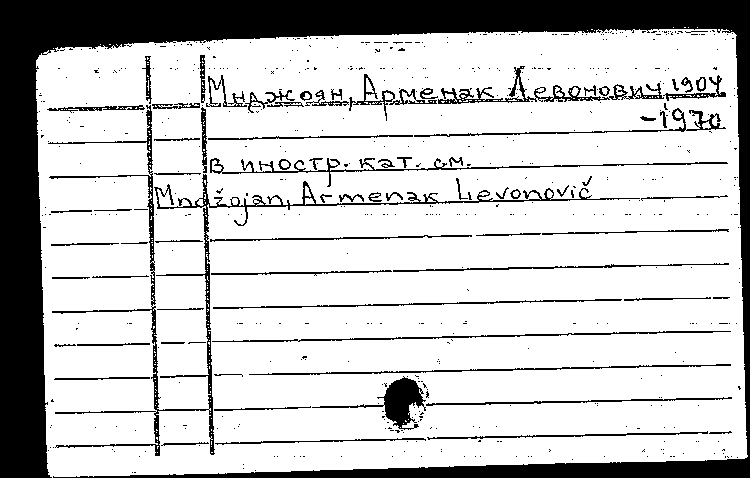 Мнджоян, Арменак Левонович, 1904
-1970
в иностр. кат. см.
Mndžojan, Armenak Levonovič